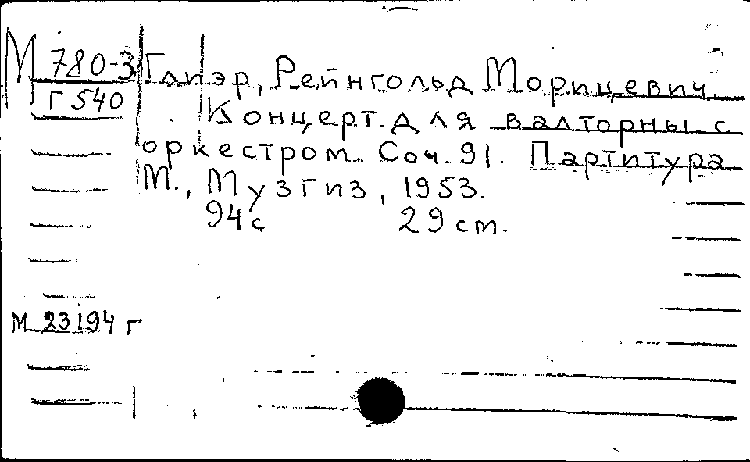 М 780-3 Глиэр, Рейнгольд Морицевич.
Г 540 Концерт для валторны с
оркестром. Соч. 91. Партитура
М., Музгиз, 1953.
94 с 29 см.
М 23194 г